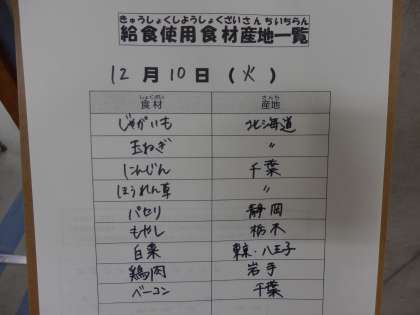 きゅうしょくしようしょくざいさんちいちらん
給食使用食材産地一覧
12月10日(火)
しょくざい さんち
食材 産地
じゃがいも 北海道
玉ねぎ 〃
にんじん 千葉
ほうれん草 〃
パセリ 静岡
もやし 栃木
白菜 東京・八王子
鶏肉 岩手
ベーコン 千葉